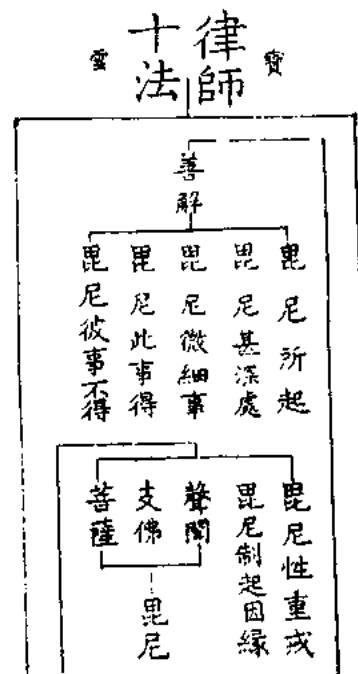 寶
律師
十法
雲
善解
毘尼所起
毘尼甚深處
毘尼微細事
毘尼此事得
毘尼彼事不得
毘尼性重戒
毘尼制起因緣
聲聞
支佛
菩薩
毘尼